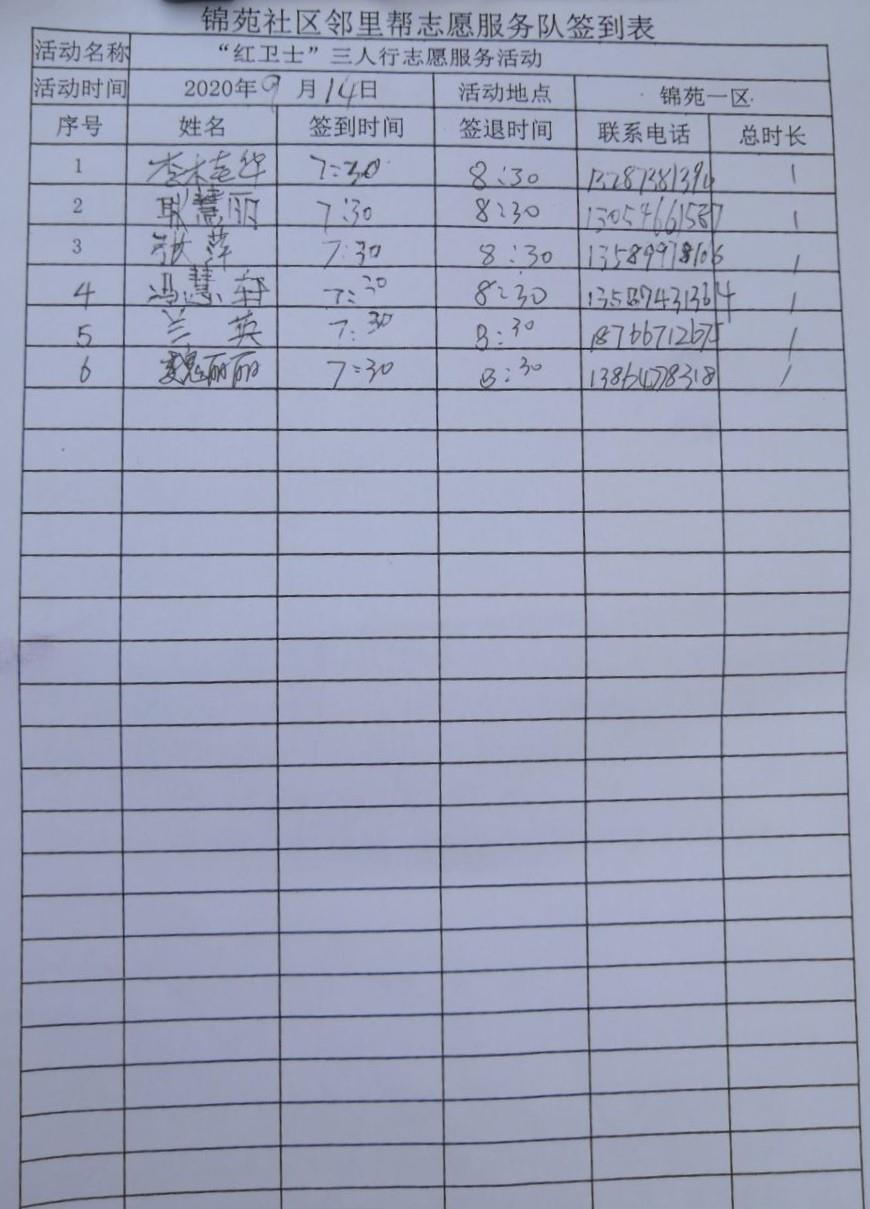 锦苑社区邻里帮志愿服务队签到表
活动名称 “红卫士”三人行志愿服务活动
活动时间 2020年9月14日 活动地点 锦苑一区
序号 姓名 签到时间 签退时间 联系电话 总时长
1 李桂华 7:30 8:30 1
2 耿慧丽 7:30 8:30 1
3 张萍 7:30 8:30 1
4 冯慧轩 7:30 8:30 1
5 兰英 7:30 8:30 18766712675 1
6 魏丽丽 7:30 8:30 13864778318 1